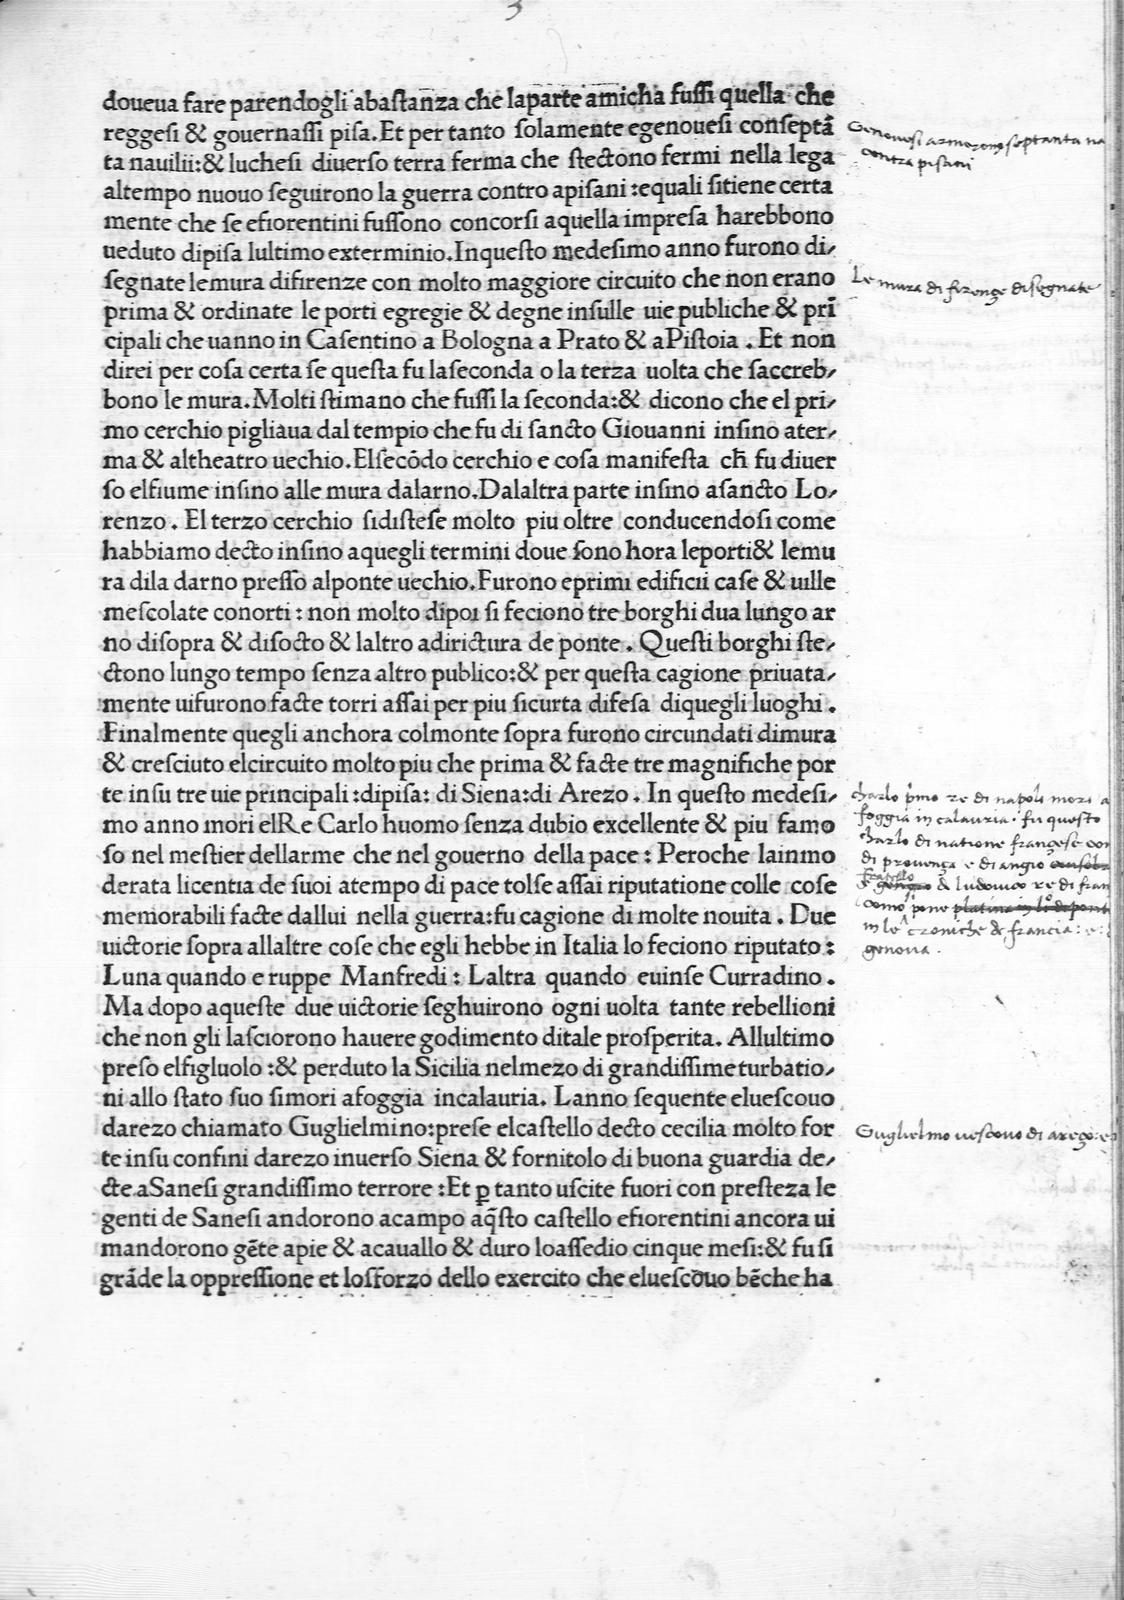 doueua fare parendogli abaſtanza che laparte amicha fuſſi quella che
reggeſi & gouernaſſi piſa. Et per tanto ſolamente egenoueſi conſeptā
ta nauilii:& lucheſi diuerſo terra ferma che ſtectono fermi nella lega
altempo nuouo ſeguirono la guerra contro apiſani :equali ſitiene certa
mente che ſe efiorentini fuſſono concorſi aquella impreſa harebbono
ueduto dipiſa lultimo exterminio. Inqueſto medeſimo anno furono di/
ſegnate lemura difirenze con molto maggiore circuito che non erano
prima & ordinate le porti egregie & degne inſulle uie publiche & prī
cipali che uanno in Caſentino a Bologna a Prato & aPiſtoia . Et non
direi per coſa certa ſe queſta fu laſeconda o la terza uolta che ſaccreb/
bono le mura. Molti ſtimano che fuſſi la ſeconda:& dicono che el pri/
mo cerchio pigliaua dal tempio che fu di ſancto Giouanni inſino ater/
ma & altheatro uechio. Elſecōdo cerchio e coſa manifeſta ch̄ fu diuer
ſo elfiume inſino alle mura dalarno. Dalaltra parte inſino aſancto Lo/
renzo . El terzo cerchio ſidiſteſe molto piu oltre conducendoſi come
habbiamo decto inſino aquegli termini doue ſono hora leporti& lemu
ra dila darno preſſo alponte uechio. Furono eprimi edificii caſe & uille
meſcolate conorti : non molto dipoi ſi feciono tre borghi dua lungo ar
no diſopra & diſocto & laltro adirictura de ponte . Queſti borghi ſte/
ctono lungo tempo ſenza altro publico:& per queſta cagione priuata/
mente uifurono facte torri aſſai per piu ſicurta difeſa diquegli luoghi .
Finalmente quegli anchora colmonte ſopra furono circundati dimura
& creſciuto elcircuito molto piu che prima & facte tre magnifiche por
te inſu tre uie principali :dipiſa: di Siena:di Arezo . In queſto medeſi/
mo anno mori elRe Carlo huomo ſenza dubio excellente & piu famo
ſo nel meſtier dellarme che nel gouerno della pace : Peroche lainmo
derata licentia de ſuoi atempo di pace tolſe aſſai riputatione colle coſe
memorabili facte dallui nella guerra:fu cagione di molte nouita . Due
uictorie ſopra allaltre coſe che egli hebbe in Italia lo feciono riputato :
Luna quando e ruppe Manfredi : Laltra quando euinſe Curradino .
Ma dopo aqueſte due uictorie ſeghuirono ogni uolta tante rebellioni
che non gli laſciorono hauere godimento ditale proſperita. Allultimo
preſo elfigluolo :& perduto la Sicilia nelmezo di grandiſſime turbatio/
ni allo ſtato ſuo ſimori afoggia incalauria. Lanno ſequente elueſcouo
darezo chiamato Guglielmino:preſe elcaſtello decto cecilia molto for
te inſu confini darezo inuerſo Siena & fornitolo di buona guardia de/
cte aSaneſi grandiſſimo terrore :Et ꝑ tanto uſcite fuori con preſteza le
genti de Saneſi andorono acampo aq̄ſto caſtello efiorentini ancora ui
mandorono gēte apie & acauallo & duro loaſſedio cinque meſi:& fu ſi
grāde la oppreſſione et loſforzo dello exercito che elueſcōuo bēche ha
Genovesi armorono septanta na
contra pisani
Le mura di firenze disegnate
charlo pmo re di napoli mori a
foggia in calauria: fu questo
charlo di natione franzese con
di provenza e di angio
fratello
di ludovico re di fran
como pone
in le croniche de francia: e
genova .
Guglielmo vescovo di arezo: